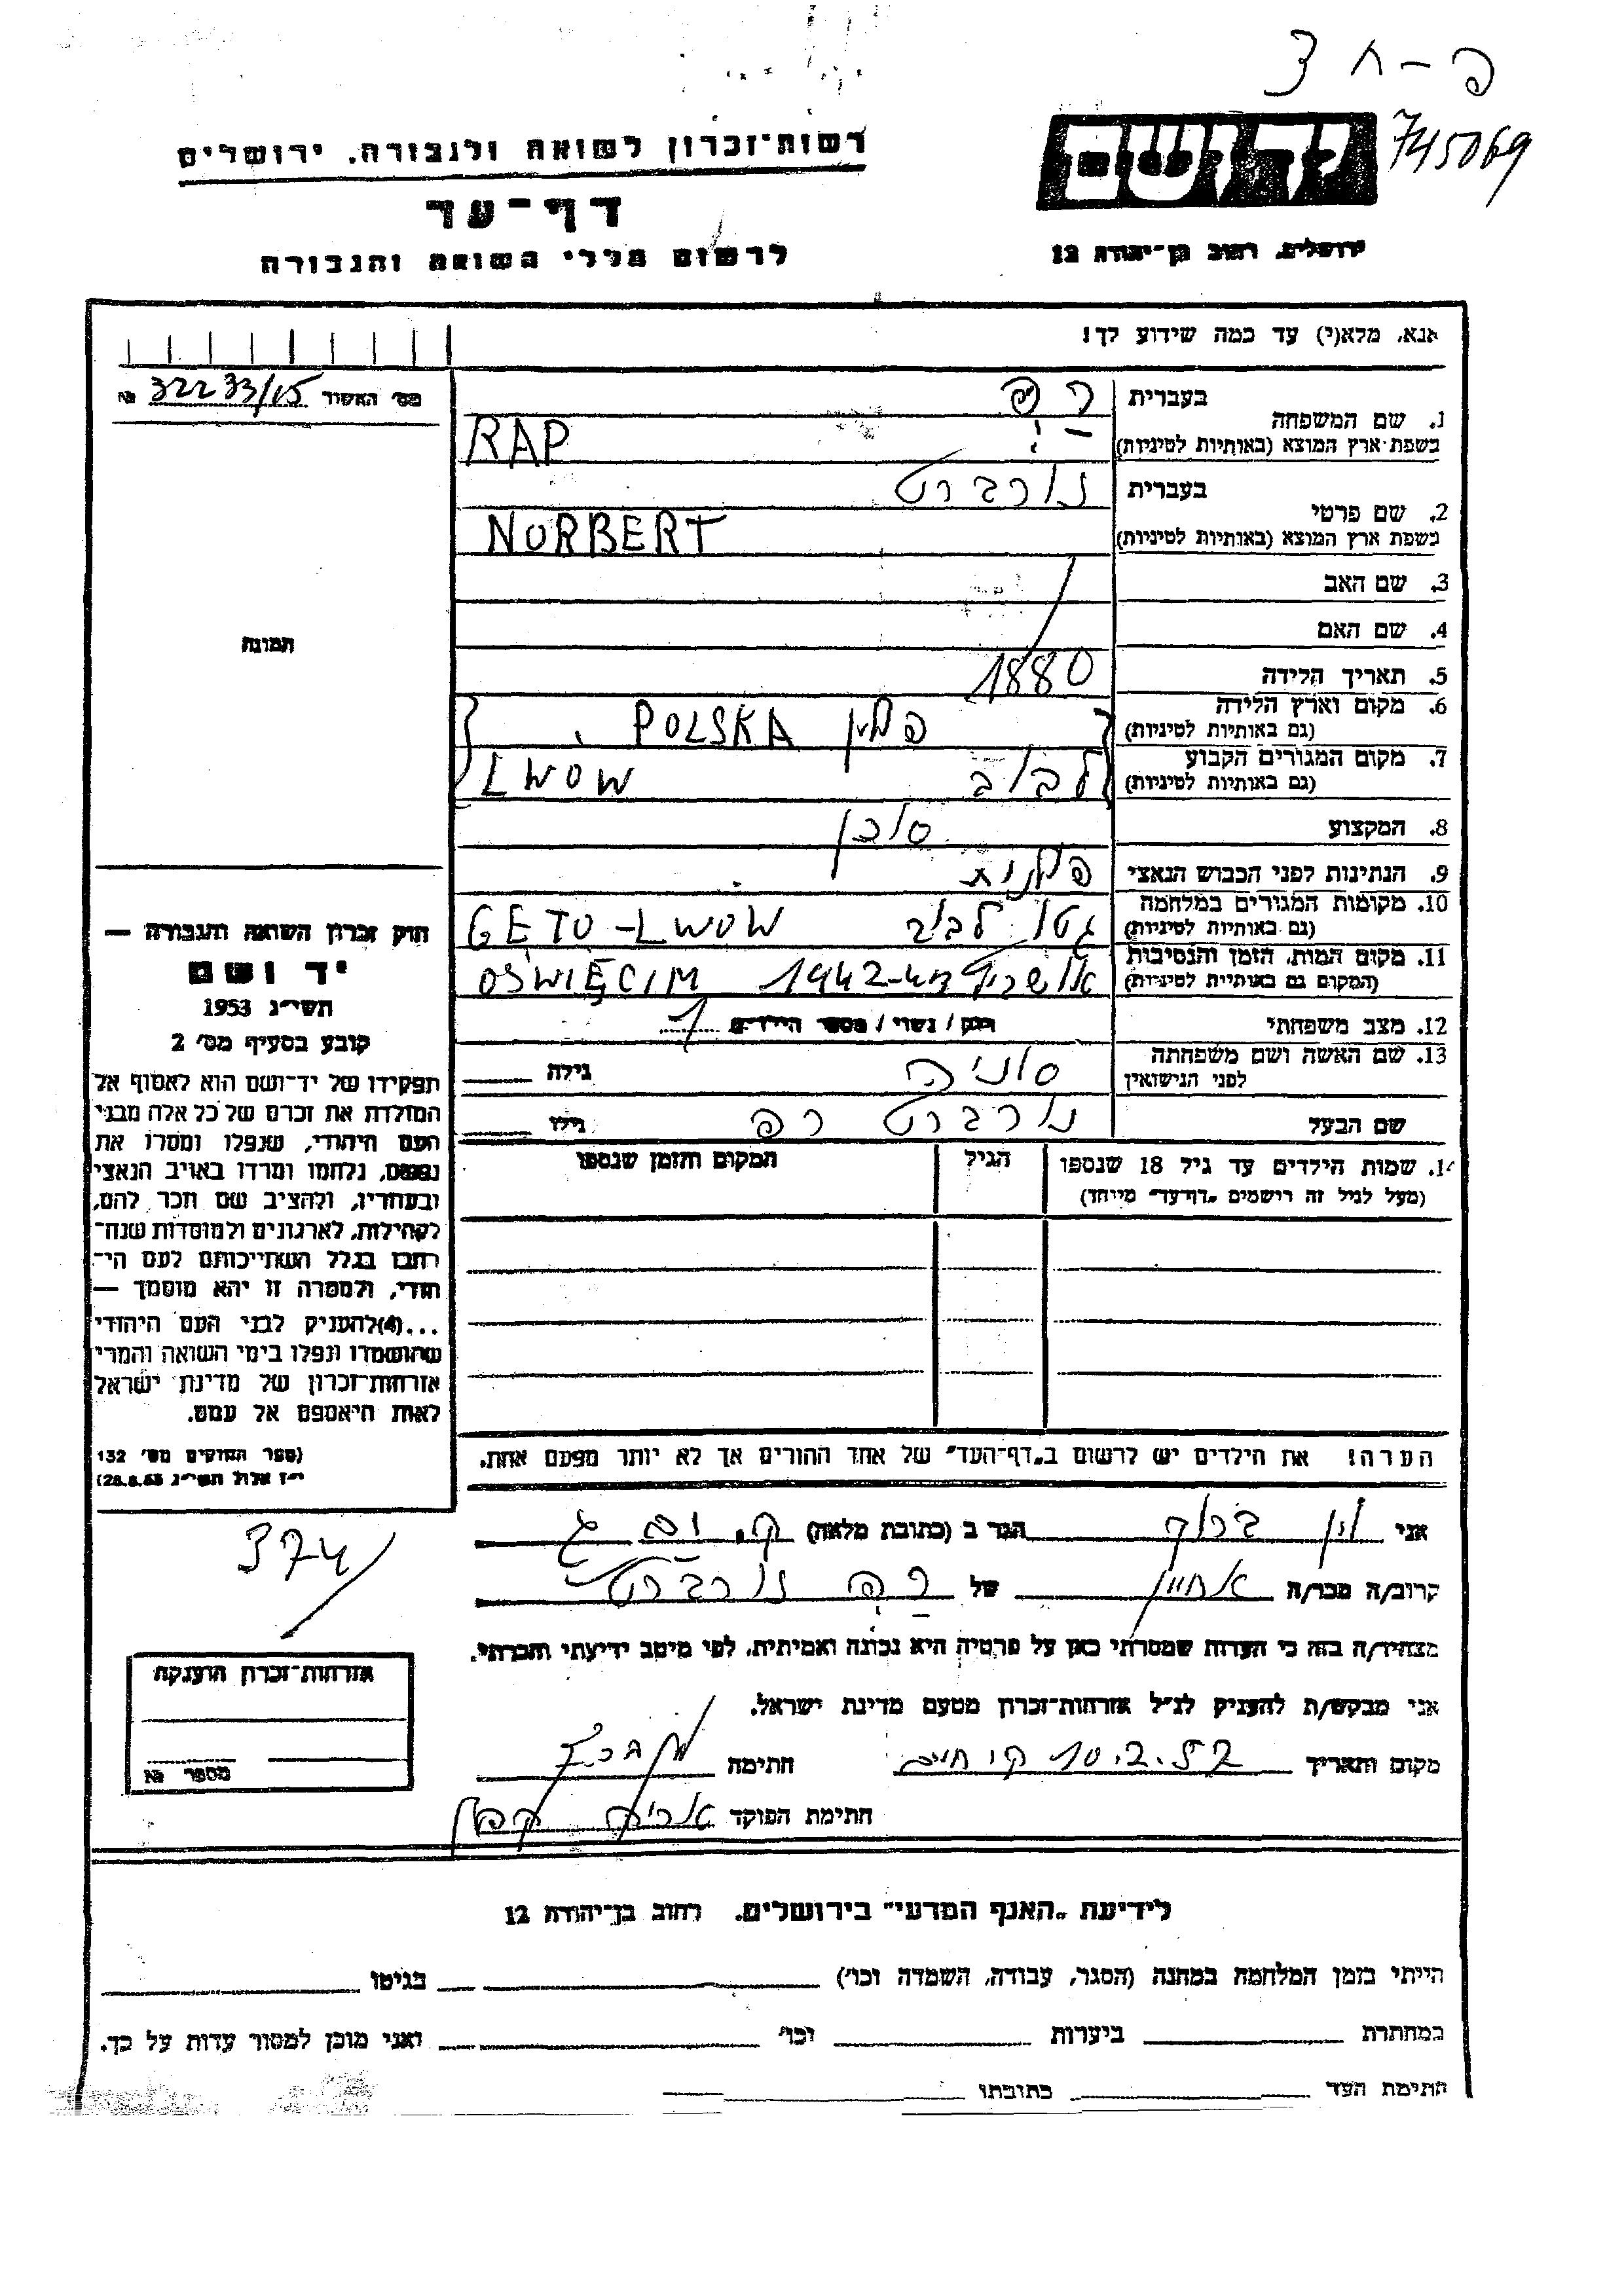 פ-ח 3
745069
יד ושם
ירושלים, רחוב בן-יהודה 12
רשות-זכרון לשואה ולגבורה, ירושלים
דף-עד
לרשום חללי השואה והגבורה
אנא, מלא(י) עד כמה שידוע לך!
מס׳ האשור 32233/15 №
1. שם המשפחה בעברית רפ
בשפת-ארץ המוצא (באותיות לטיניות) RAP
2. שם פרטי בעברית נורברט
בשפת ארץ המוצא (באותיות לטיניות) NORBERT
3. שם האב
4. שם האם
5. תאריך הלידה 1880
6. מקום וארץ הלידה פולין POLSKA
(גם באותיות לטיניות)
7. מקום המגורים הקבוע לבוב LWOW
(גם באותיות לטיניות)
8. המקצוע סוכן
9. הנתינות לפני הכבוש הנאצי פולנית
10. מקומות המגורים במלחמה גטו לבוב GETO-LWOW
(גם באותיות לטיניות)
11. מקום המות, הזמן והנסיבות אושביץ 1942-43 OŚWIĘCIM
(המקום גם באותיות לטיניות)
12. מצב משפחתי רוק / נשוי / מספר הילדים 1
13. שם האשה ושם משפחתה סוניה גילה
לפני הנישואין
שם הבעל נורברט רפ גילו
14. שמות הילדים עד גיל 18 שנספו הגיל המקום והזמן שנספו
(מעל לגיל זה רישמים „דף-עד״ מייחד)
הערה! את הילדים יש לרשום ב„דף-העד״ של אחד ההורים אך לא יותר מפעם אחת.
תמונה
חוק זכרון השואה והגבורה —
יד ושם
תשי״ג 1953
קובע בסעיף מס׳ 2
תפקידו של יד-ושם הוא לאסוף אל
המולדת את זכרם של כל אלה מבני
העם היהודי, שנפלו ומסרו את
נפשם, נלחמו ומרדו באויב הנאצי
ובעוזריו, ולהציב שם וזכר להם,
לקהילות, לארגונים ולמוסדות שנח-
רבו בגלל השתייכותם לעם הי-
הודי, ולמטרה זו יהא מוסמך —
...(4)להעניק לבני העם היהודי
שהושמדו ונפלו בימי השואה והמרי
אזרחות-זכרון של מדינת ישראל
לאות היאספם אל עמם.
(ספר החוקים מס׳ 132
י״ז אלול תשי״ג 28.8.53)
374
אני ברוך הגר ב (כתובת מלאה)
קרוב/ה מכר/ה אחיין של רפ נורברט
מצהיר/ה בזה כי העדות שמסרתי כאן על פרטיה היא נכונה ואמיתית, לפי מיטב ידיעתי והכרתי.
אני מבקש/ת להעניק לנ״ל אזרחות-זכרון מטעם מדינת ישראל.
מקום ותאריך 10.2.57 ק. חיים חתימה
חתימת הפוקד
אזרחות-זכרון הוענקה
מספר №
לידיעת „האגף המדעי״ בירושלים, רחוב בן-יהודה 12
הייתי בזמן המלחמה במחנה (הסגר, עבודה, השמדה וכו׳) בגיטו
במחתרת ביערות וכו׳ ואני מוכן למסור עדות על כך.
חתימת העד כתובתו